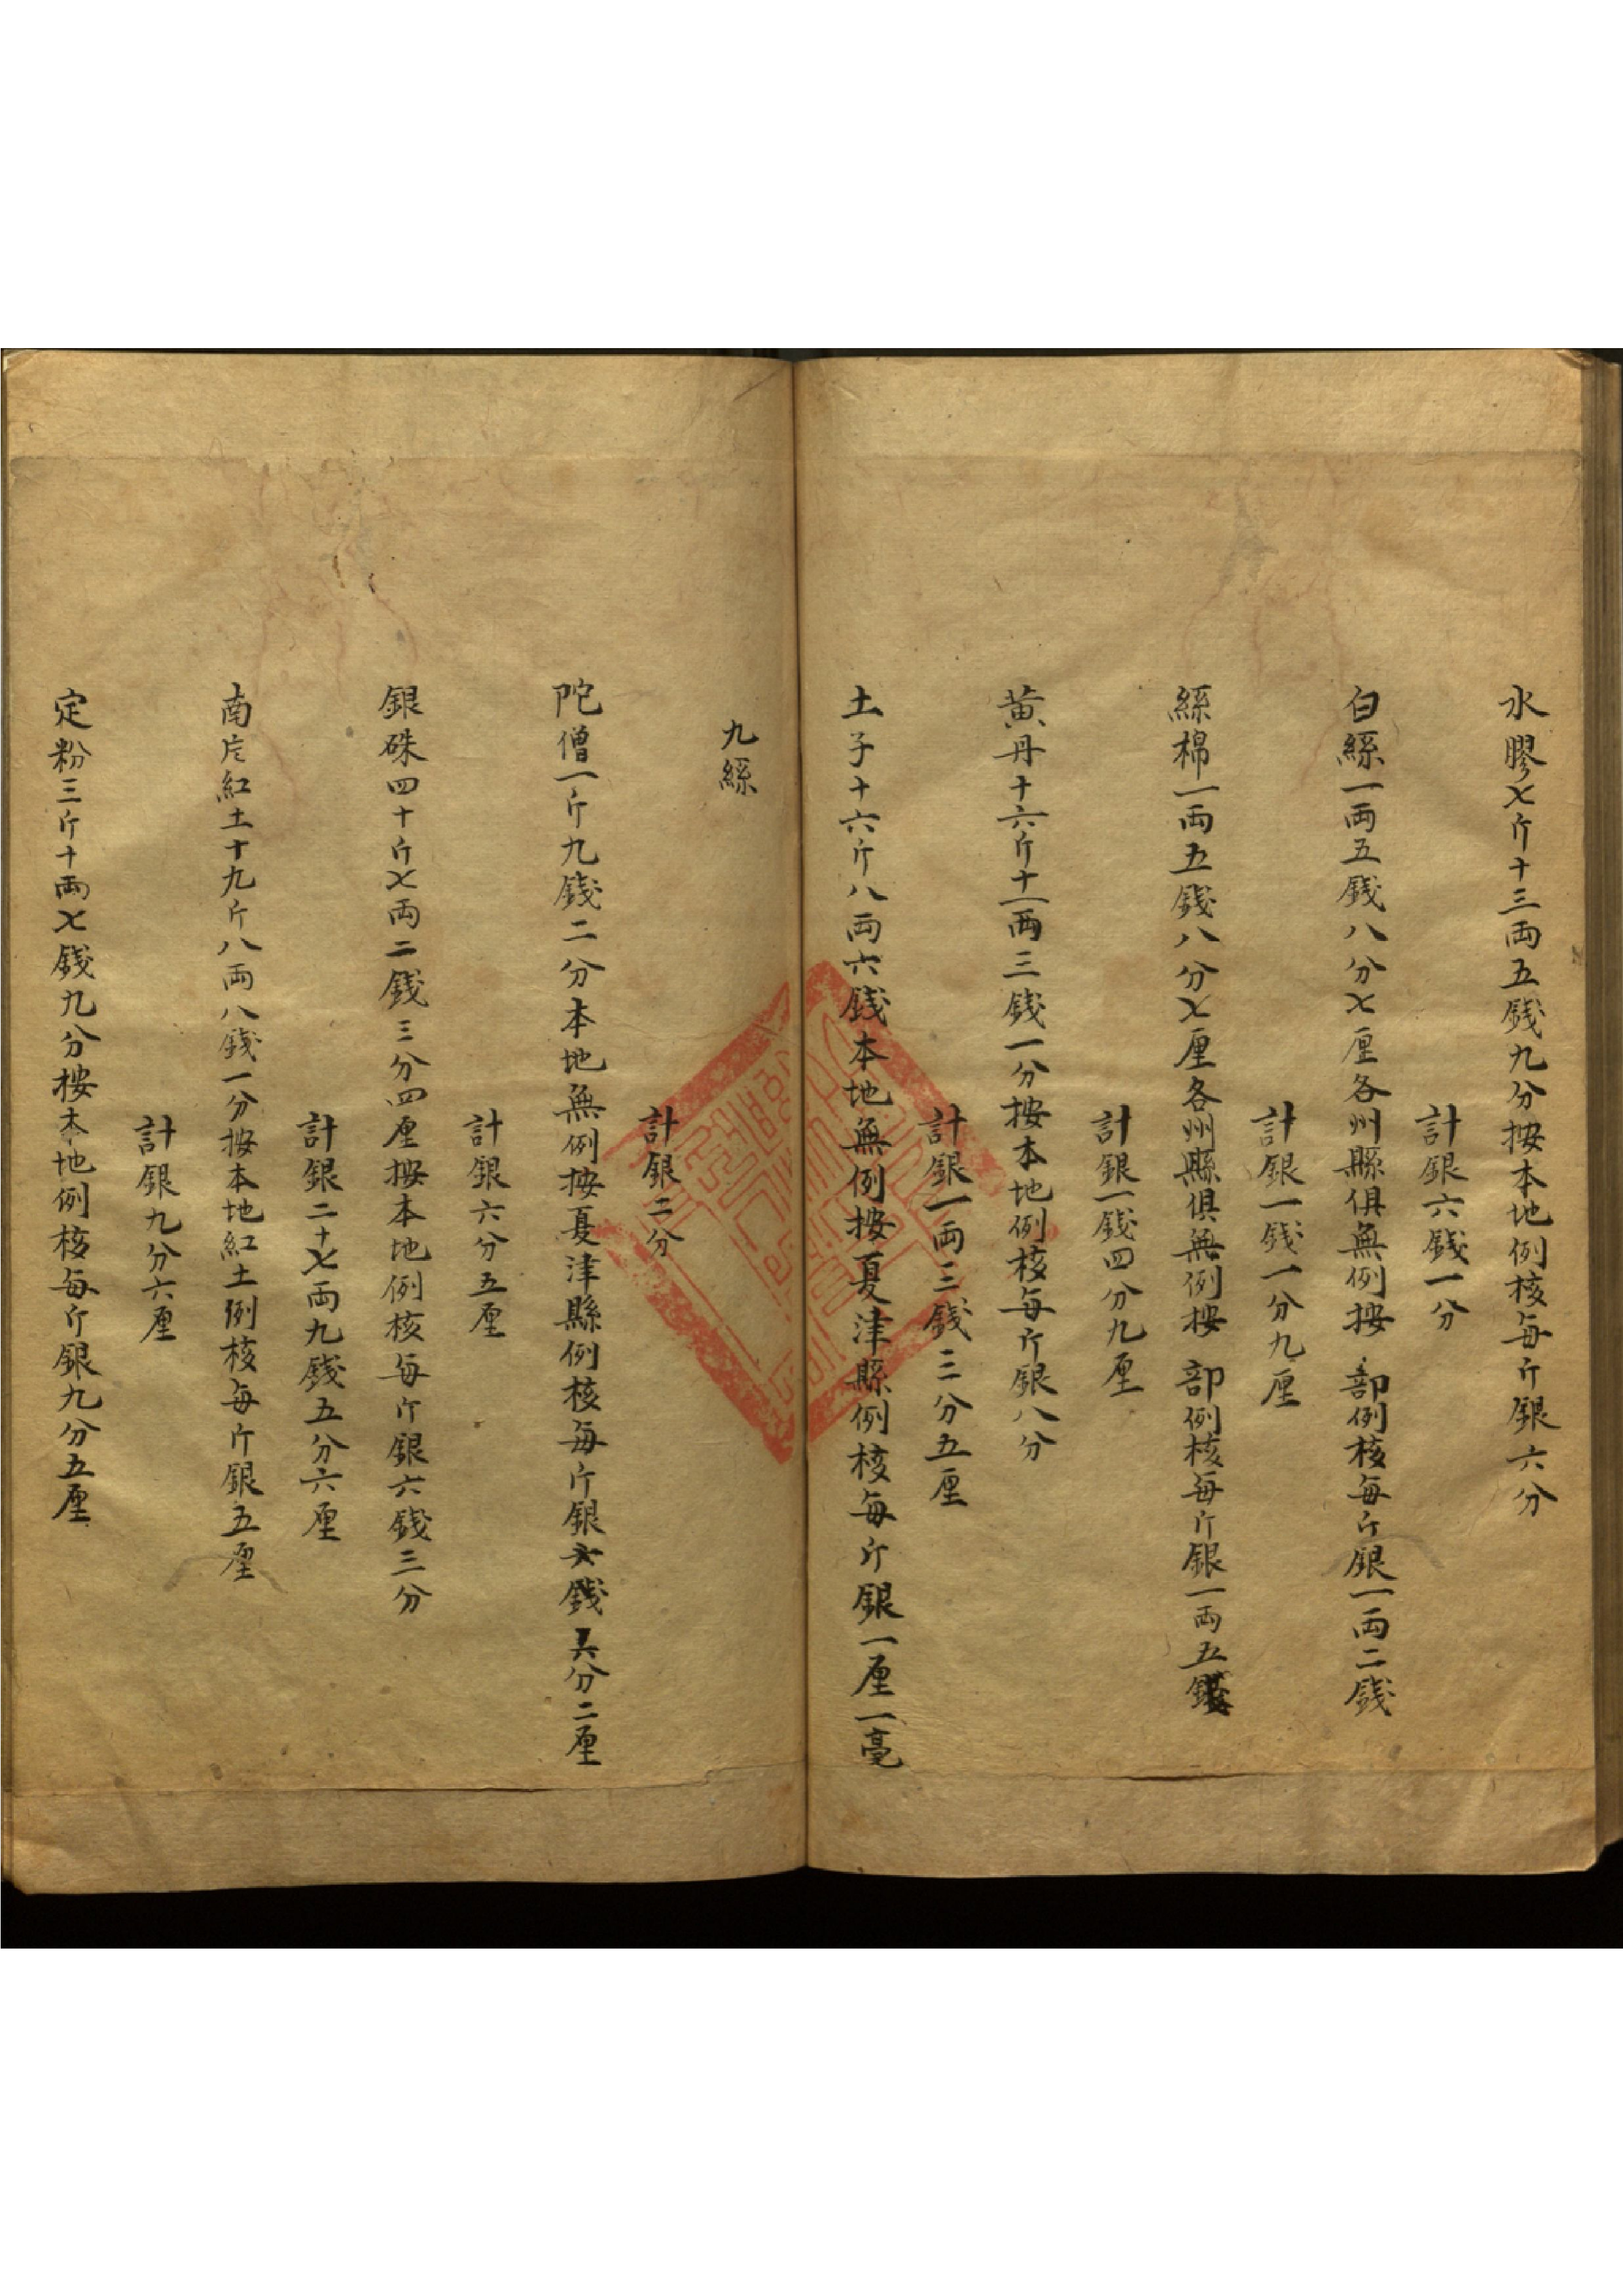 水膠七斤十三両五銭九分按本地例核每斤銀六分
計銀六銭一分
白絲一両五銭八分七厘各州縣俱無例按 部例核每斤銀一両二銭
計銀一銭一分九厘
絲棉一両五銭八分七厘各州縣俱無例按 部例核每斤銀一両五銭
計銀一銭四分九厘
黃丹十六斤十一両三銭一分按本地例核每斤銀八分
計銀一両三銭三分五厘
土子十六斤八両六銭本地無例按夏津縣例核每斤銀一厘一毫
九絲
計銀二分
陀僧一斤九銭二分本地無例按夏津縣例核每斤銀銭分二厘
計銀六分五厘
銀硃四十斤七両二銭三分四厘按本地例核每斤銀六銭三分
計銀二十七両九銭五分六厘
南片紅土十九斤八両八銭一分按本地紅土例核每斤銀五厘
計銀九分六厘
定粉三斤十両七銭九分按本地例核每斤銀九分五厘